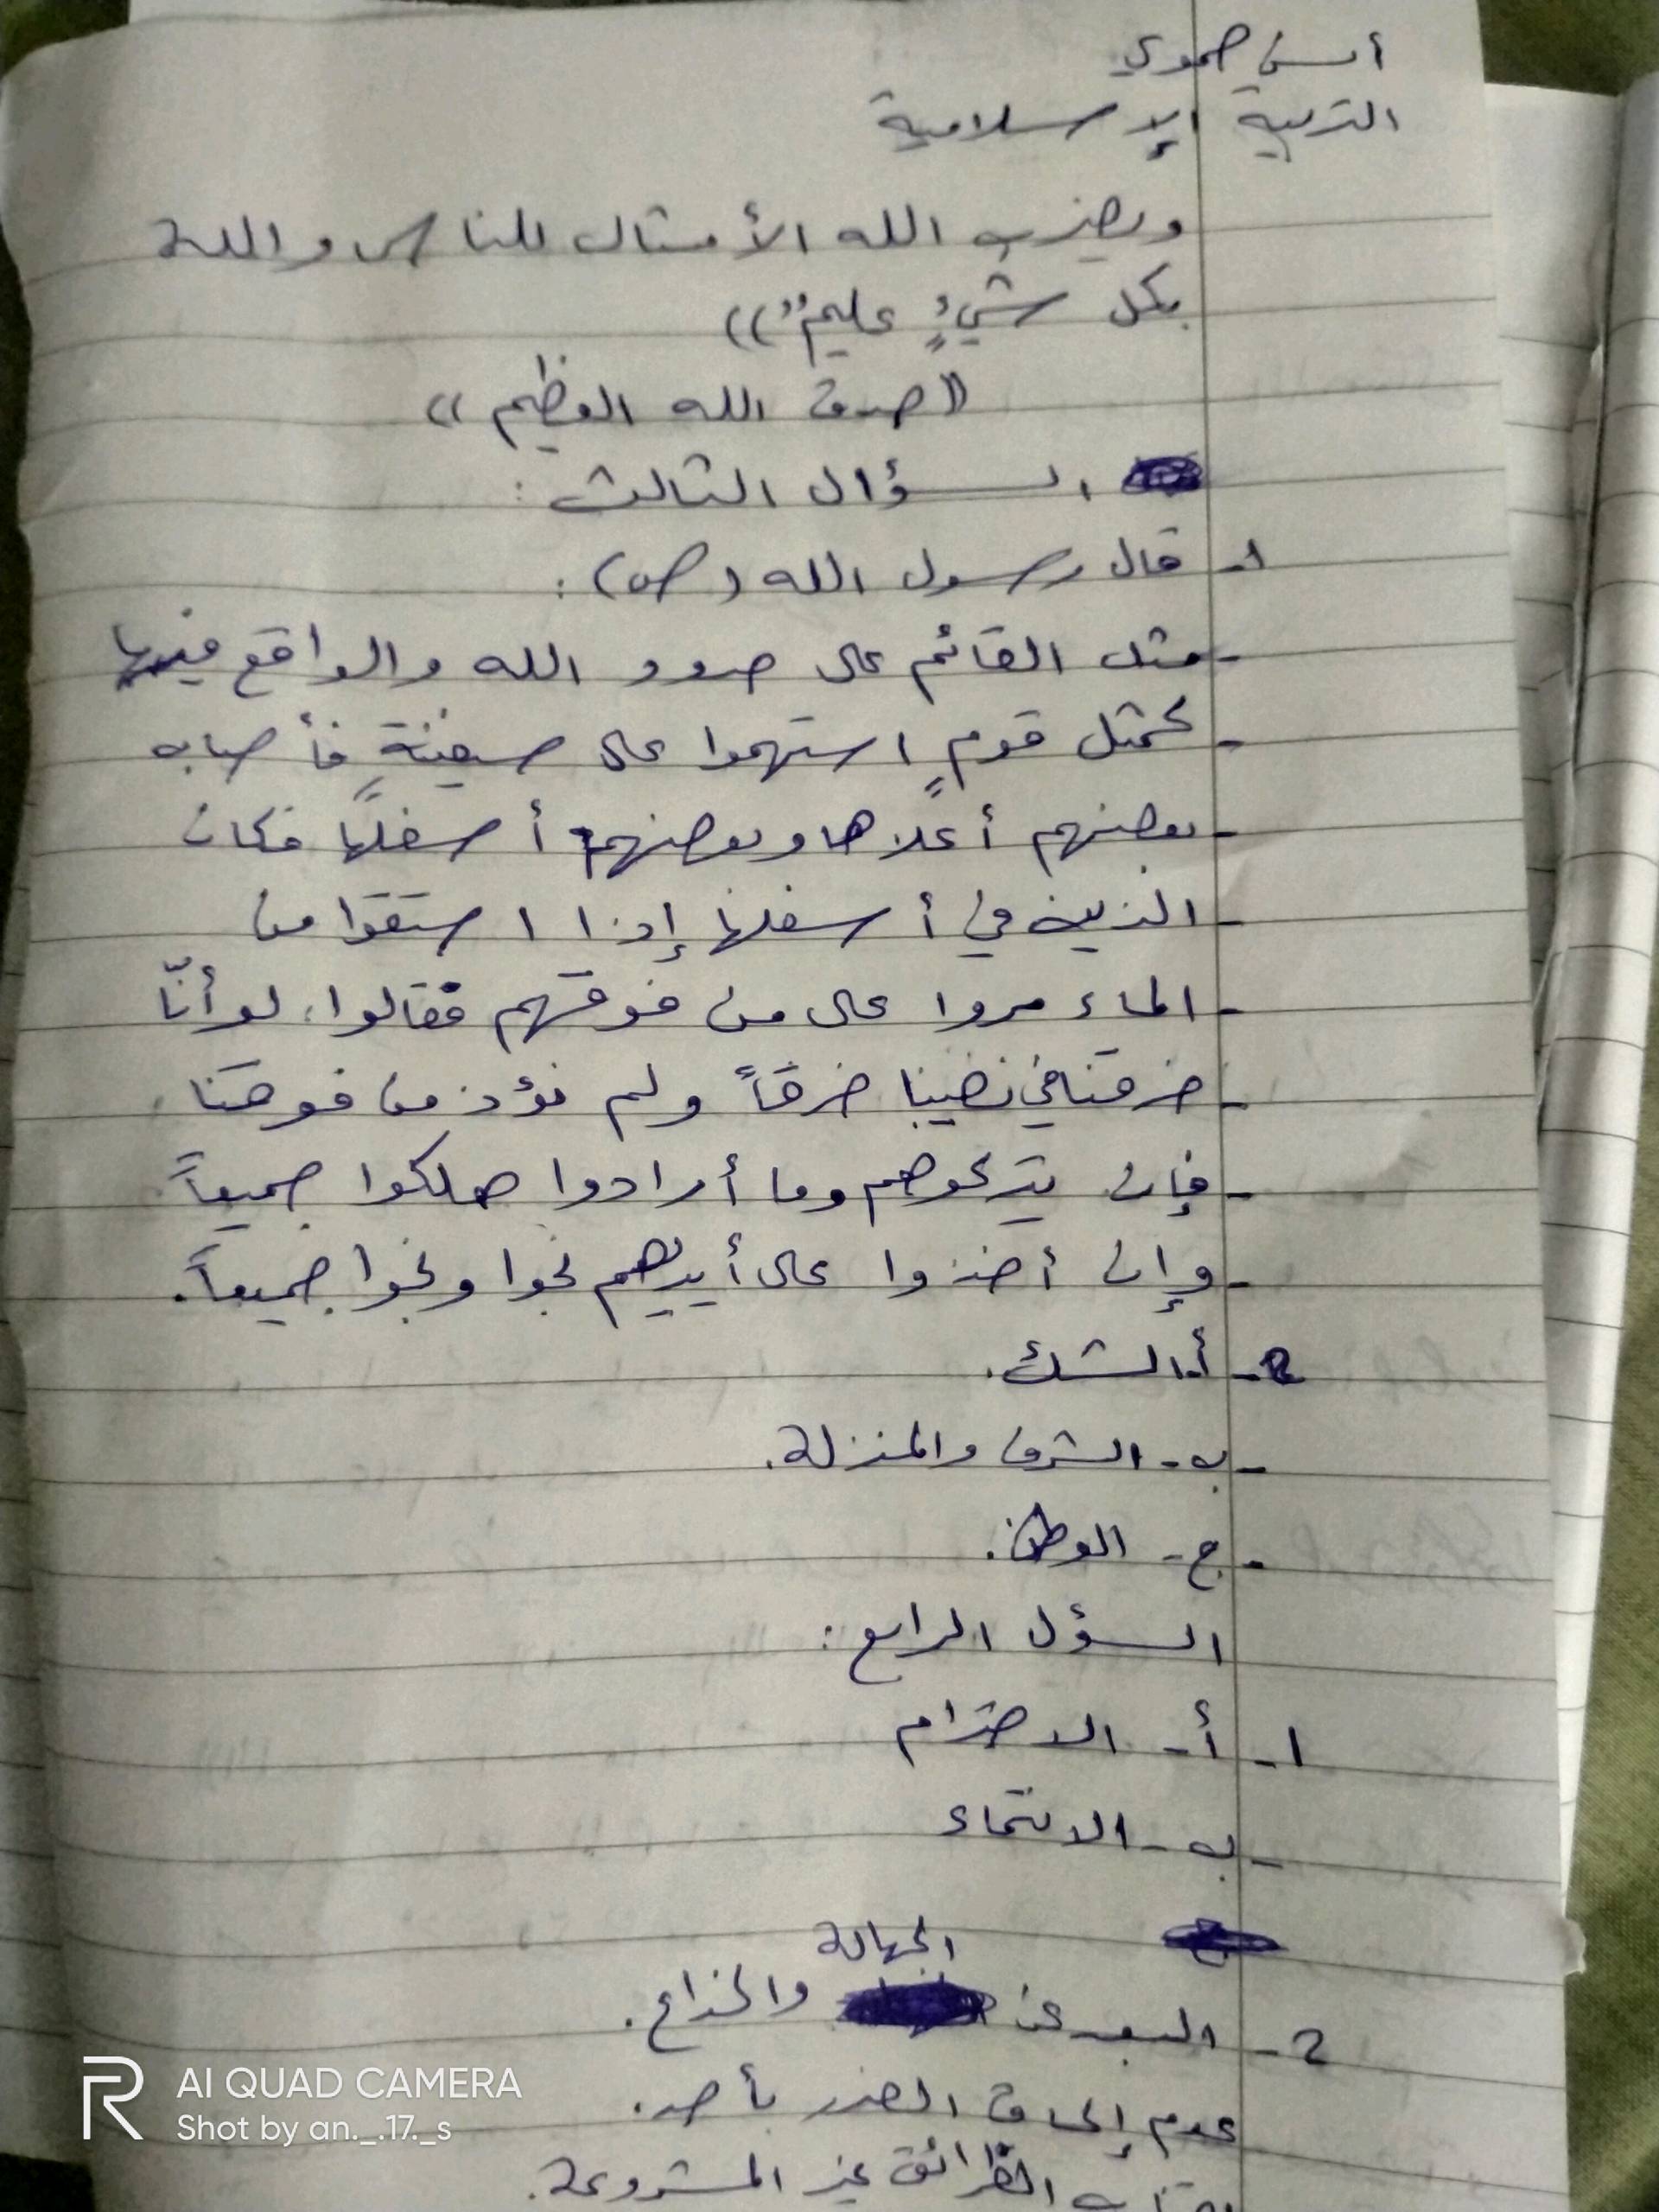 أنس حموي
التربية الإسلامية
ويضرب الله الأمثال للناس والله
بكل شيءٍ عليمٌ))
((صدق الله العظيم))
السؤال الثالث:
1- قال رسول الله (ص):
- مثل القائم على حدود الله والواقع فيها
- كمثل قومٍ استهموا على سفينةٍ فأصاب
- بعضهم أعلاها وبعضهم أسفلها فكان
- الذين في أسفلها إذا استقوا من
- الماء مروا على من فوقهم فقالوا: لو أنّا
- خرقنا في نصيبنا خرقاً ولم نؤذ من فوقنا
- فإن يتركوهم وما أرادوا هلكوا جميعاً
- وإن أخذوا على أيديهم نجوا ونجوا جميعاً.
2- أ. الشك.
- ب- الشرف والمنزلة.
- ج- الوطن.
السؤل الرابع:
1- أ- الاحترام
- ب- الانتماء
الجهالة
2- البعد عن والخداع.
عدم إلحاق الضرر بأحد.
الطرائق غير المشروعة.
AI QUAD CAMERA
Shot by an._.17._s